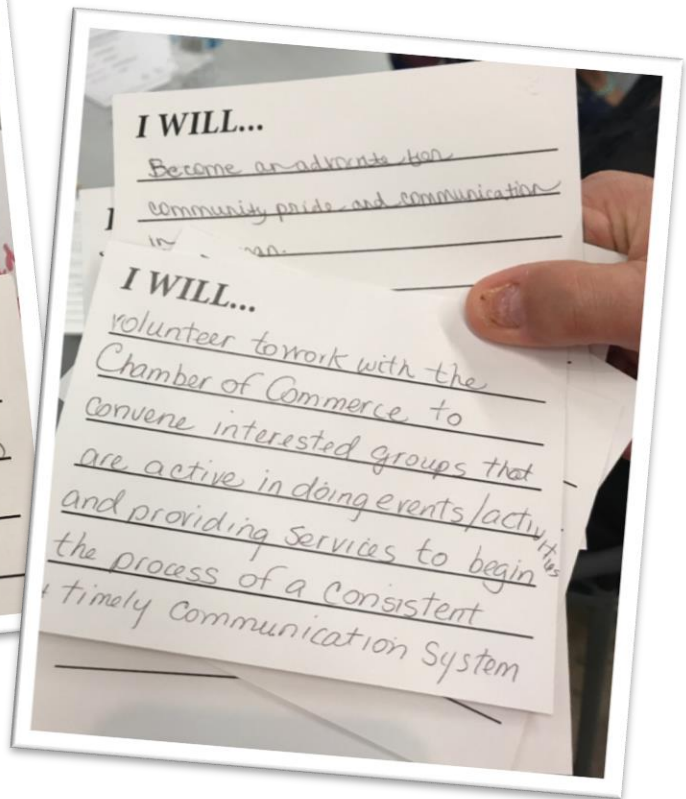 I WILL...
Become an advocate for
community pride and communication
in
I WILL...
volunteer to work with the
Chamber of Commerce to
convene interested groups that
are active in doing events/activities
and providing services to begin
the process of a consistent
+ timely Communication System